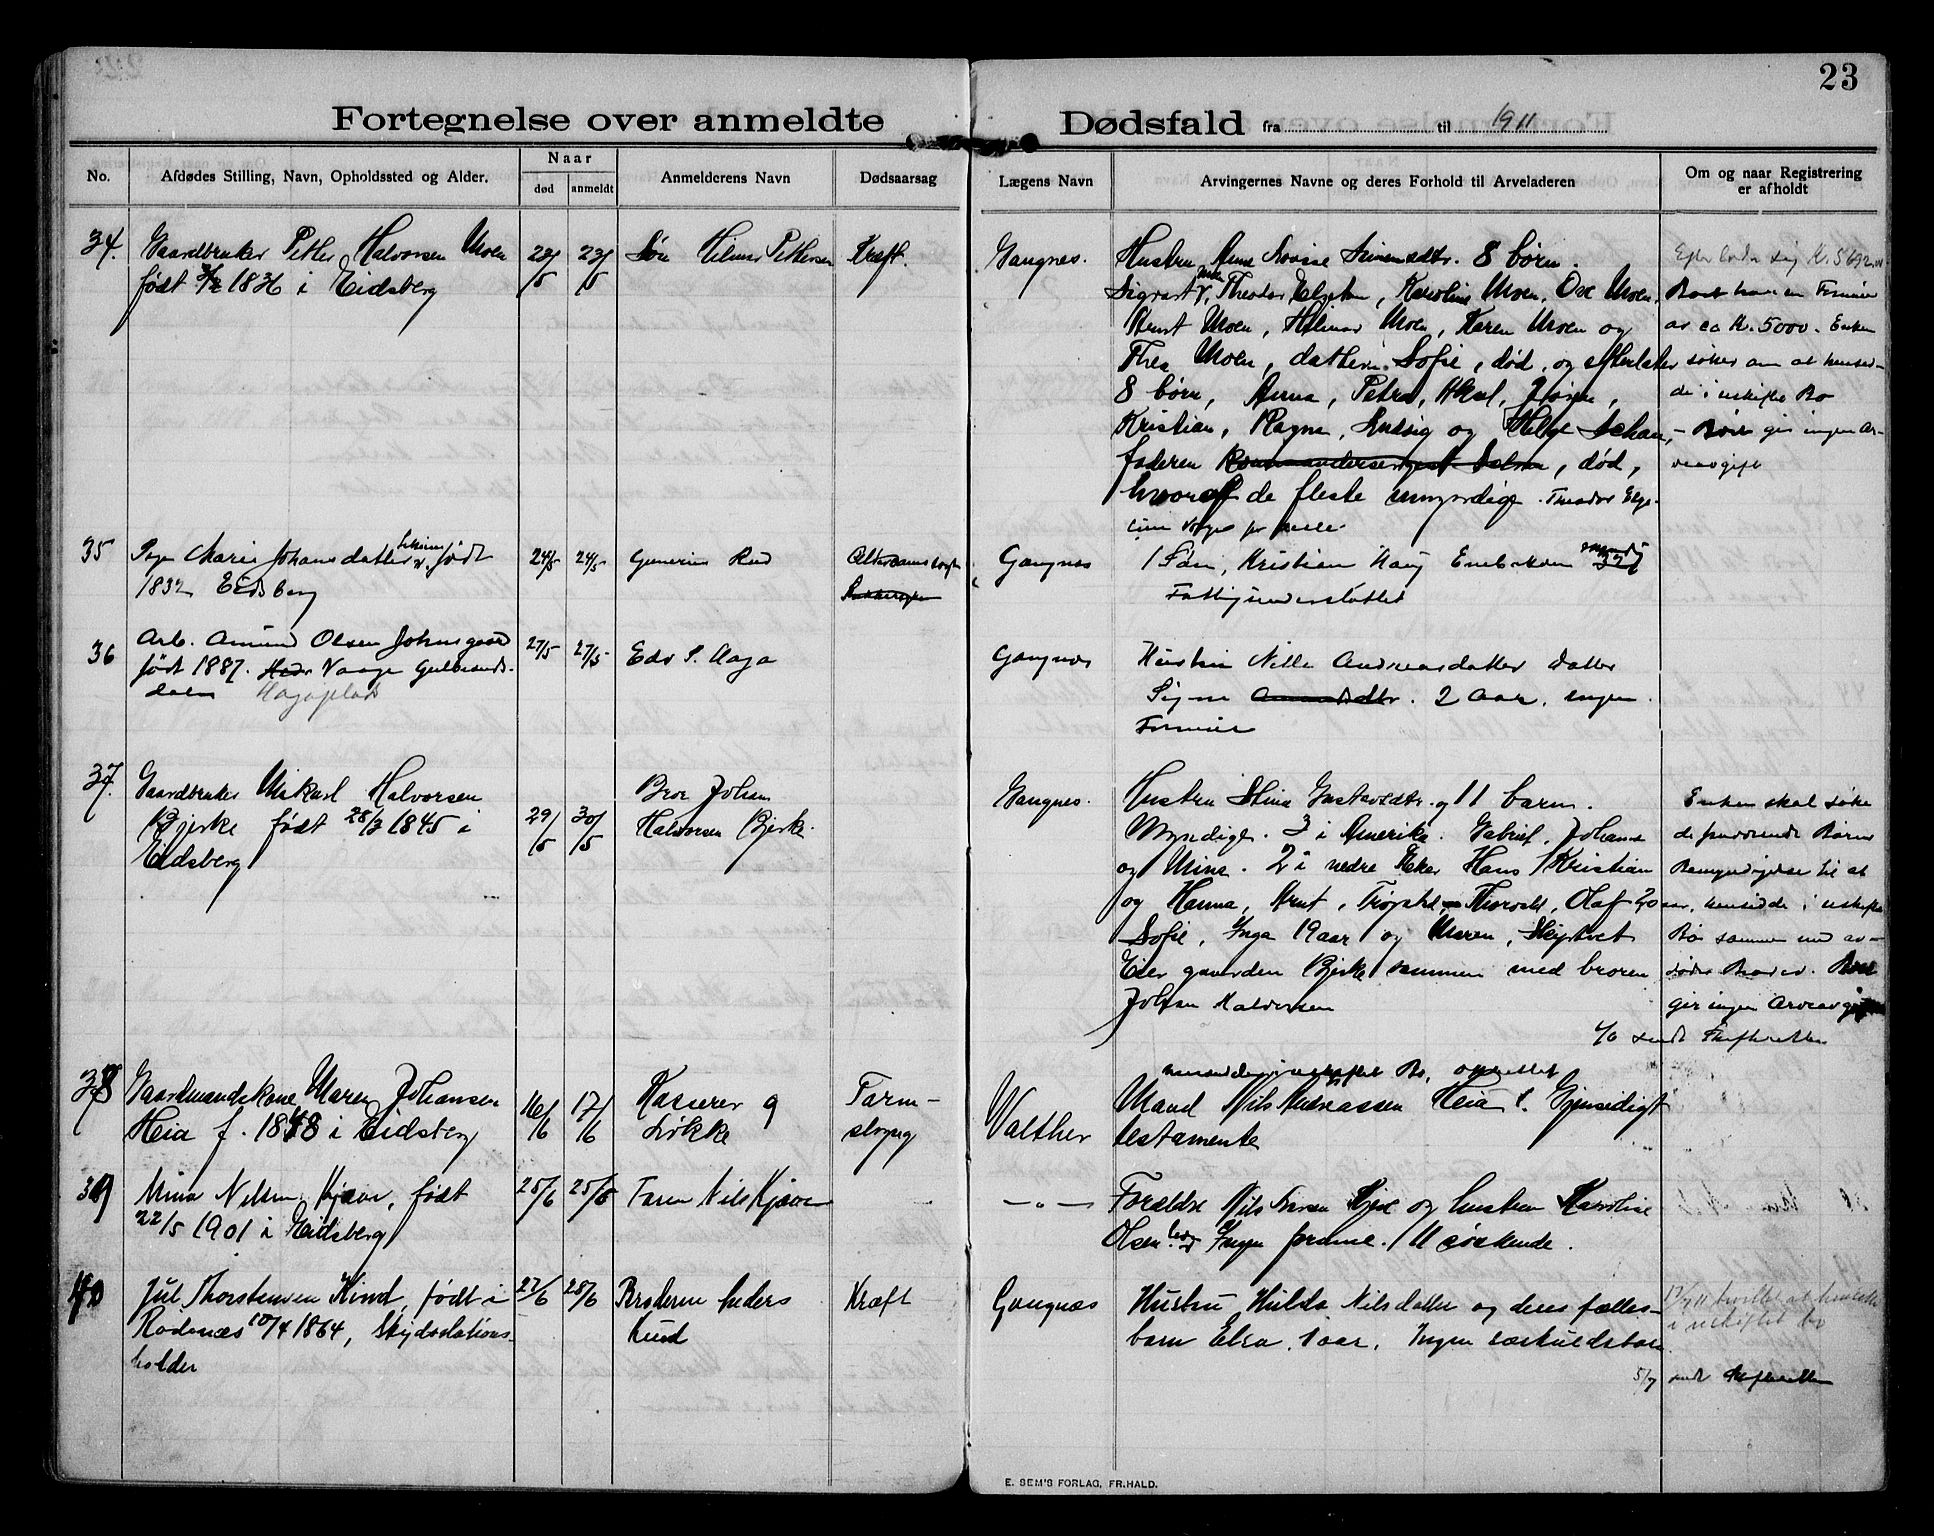 23
Fortegnelse over anmeldte Dødsfald fra til 1911
No.
Afdødes Stilling, Navn, Opholdssted og Alder.
Naar
død
anmeldt
Anmelderens Navn
Dødsaarsag
Lægens Navn
Arvingernes Navne og deres Forhold til Arveladeren
Om og naar Registrering
er afholdt
34.
Gaardbruker Petter Halvorsen Moen
født 1836 i Eidsberg
23/5
23/5
Søn Helmer Pettersen
Kræft.
Gangnes.
Hustru Anne Lovise Simensdtr. 8 børn.
Sigvart, Theodor, Karoline Moen, Ove Moen,
Arnt Moen, Hilmar Moen, Karen Moen og
Thea Moen, datteren Sofie, død, og efterlater
8 børn, Anna, Petra, Aksel,
Kristian, Ragna, Ludvig og Helge
faderen, død,
hvoraf de fleste umyndige. Theodor
Efterlader sig Kr. 5692
Boet har en Formue
av ca Kr. 5000. Enken
søker om at hensid-
de i uskiftet Bo
- Boet gir ingen Ar-
veavgift
35
Pige Marie Johansdatter født
1832 Eidsberg
24/5
24/5
Gunerius Rud
Gangnes
1 Søn, Kristian Haug
Fattigunderstøttet
36
Arb. Amund Olsen Johnsgaard
født 1887. Vaage Gulbrands-
dalen Hagaplads
27/5
27/5
Edv S. Haga
Gangnes
Hustru Nille Andreasdatter datter
Signe. 2 Aar. ingen
Formue
37.
Gaardbruker Mikael Halvorsen
Bjerke født 28/3 1845 i
Eidsberg
29/5
30/5
Bror Johan
Halvorsen Bjerke.
Gangnes.
Hustru Stina Gustavsdtr. og 11 barn.
Myndige. 3 i Amerika. Gabriel, Johanne
og Mina. 2 i nedre Eker Hans Kristian
og Hanna, Arnt, Trøgstad, Thorvald, Olaf 20 aar,
Sofie, Inga 19 aar og Maren, Skiptvet
Eier gaarden Bjerke sammen med broren
Johan Halvorsen
Enken skal søke
de paarørende Børns
Bemyndigelse til at
hensidde i uskiftet
Bo sammen med av-
dødes Broder. Boet
gir ingen Arveavgift
sendt Skifteretten
38
Gaardmandskone Maren Johansen
Heia f. 1848 i Eidsberg
16/6
17/6
Kasserer
Løkke
Tarm-
slyng
Walther
hensidde i uskiftet Bo, oprettet
Mand Nils Andreassen Heia. Gjensidigt
testamente
39
Mina Nilsen Kjave, født
22/5 1901 i Eidsberg
25/6
25/6
Faren Nils Kjave
— " —
Forældre Nils og hustru Karoline
Olsen. Ingen formue. 11 søskende.
40
Jul Thorstensen Kind, født i
Rødenæs 10/4 1864, Skydsstations-
holder
27/6
28/6
Broderen Peders
Kind
Kræft
Gangnæs
Hustru Hulda Nilsdatter og deres fælles-
barn Elsa, 1 aar. Ingen særkuldsbarn.
i uskiftet bo
5/7 sendt Skifteretten
E. SEM'S FORLAG, FR.HALD.